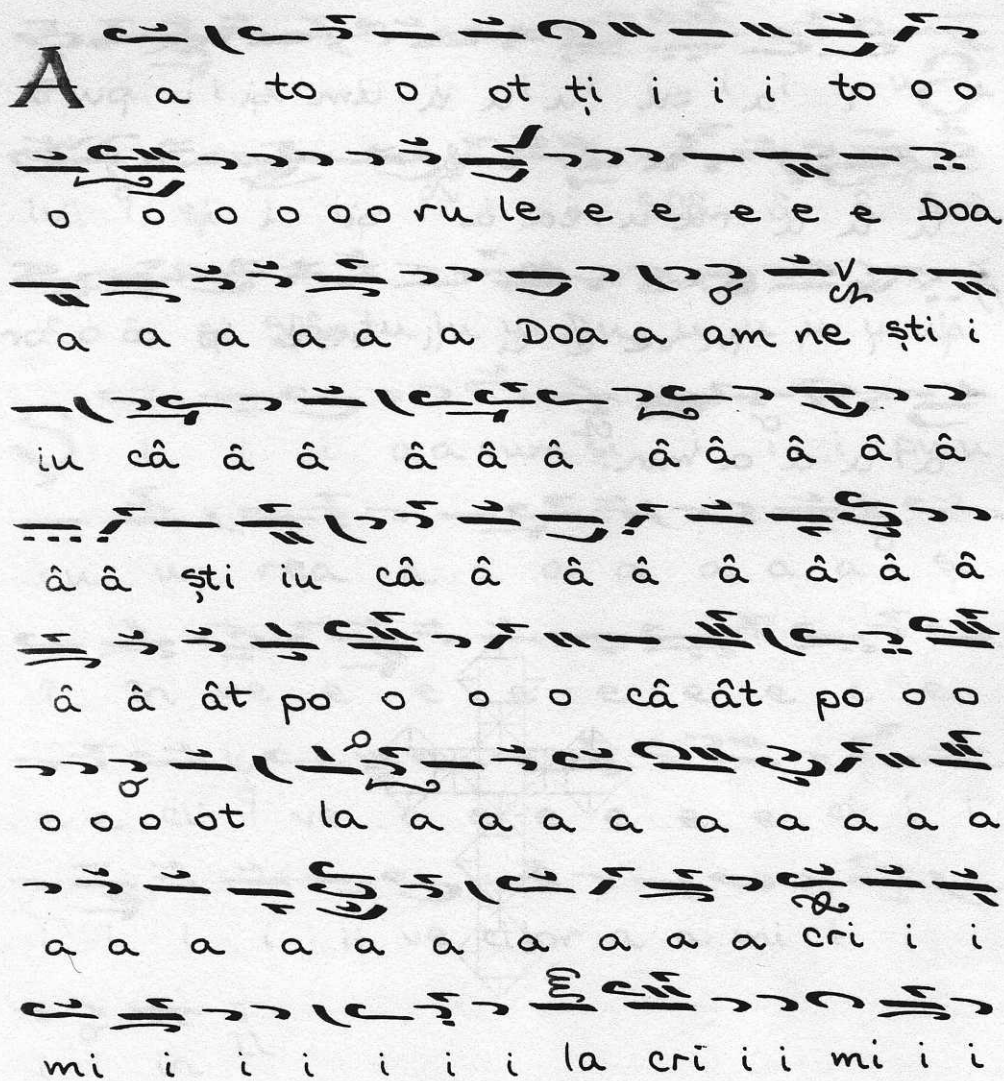 A a to o ot ți i i i to o o
o o o o o o ru le e e e e e Doa
a a a a a a Doa a am ne ști i
iu câ â â â â â â â â â â
â â ști iu câ â â â â â â â
â â ât po o o o câ ât po o o
o o o ot la a a a a a a a a a
a a a a a a a a a a cri i i
mi i i i i i i la cri i i mi i i